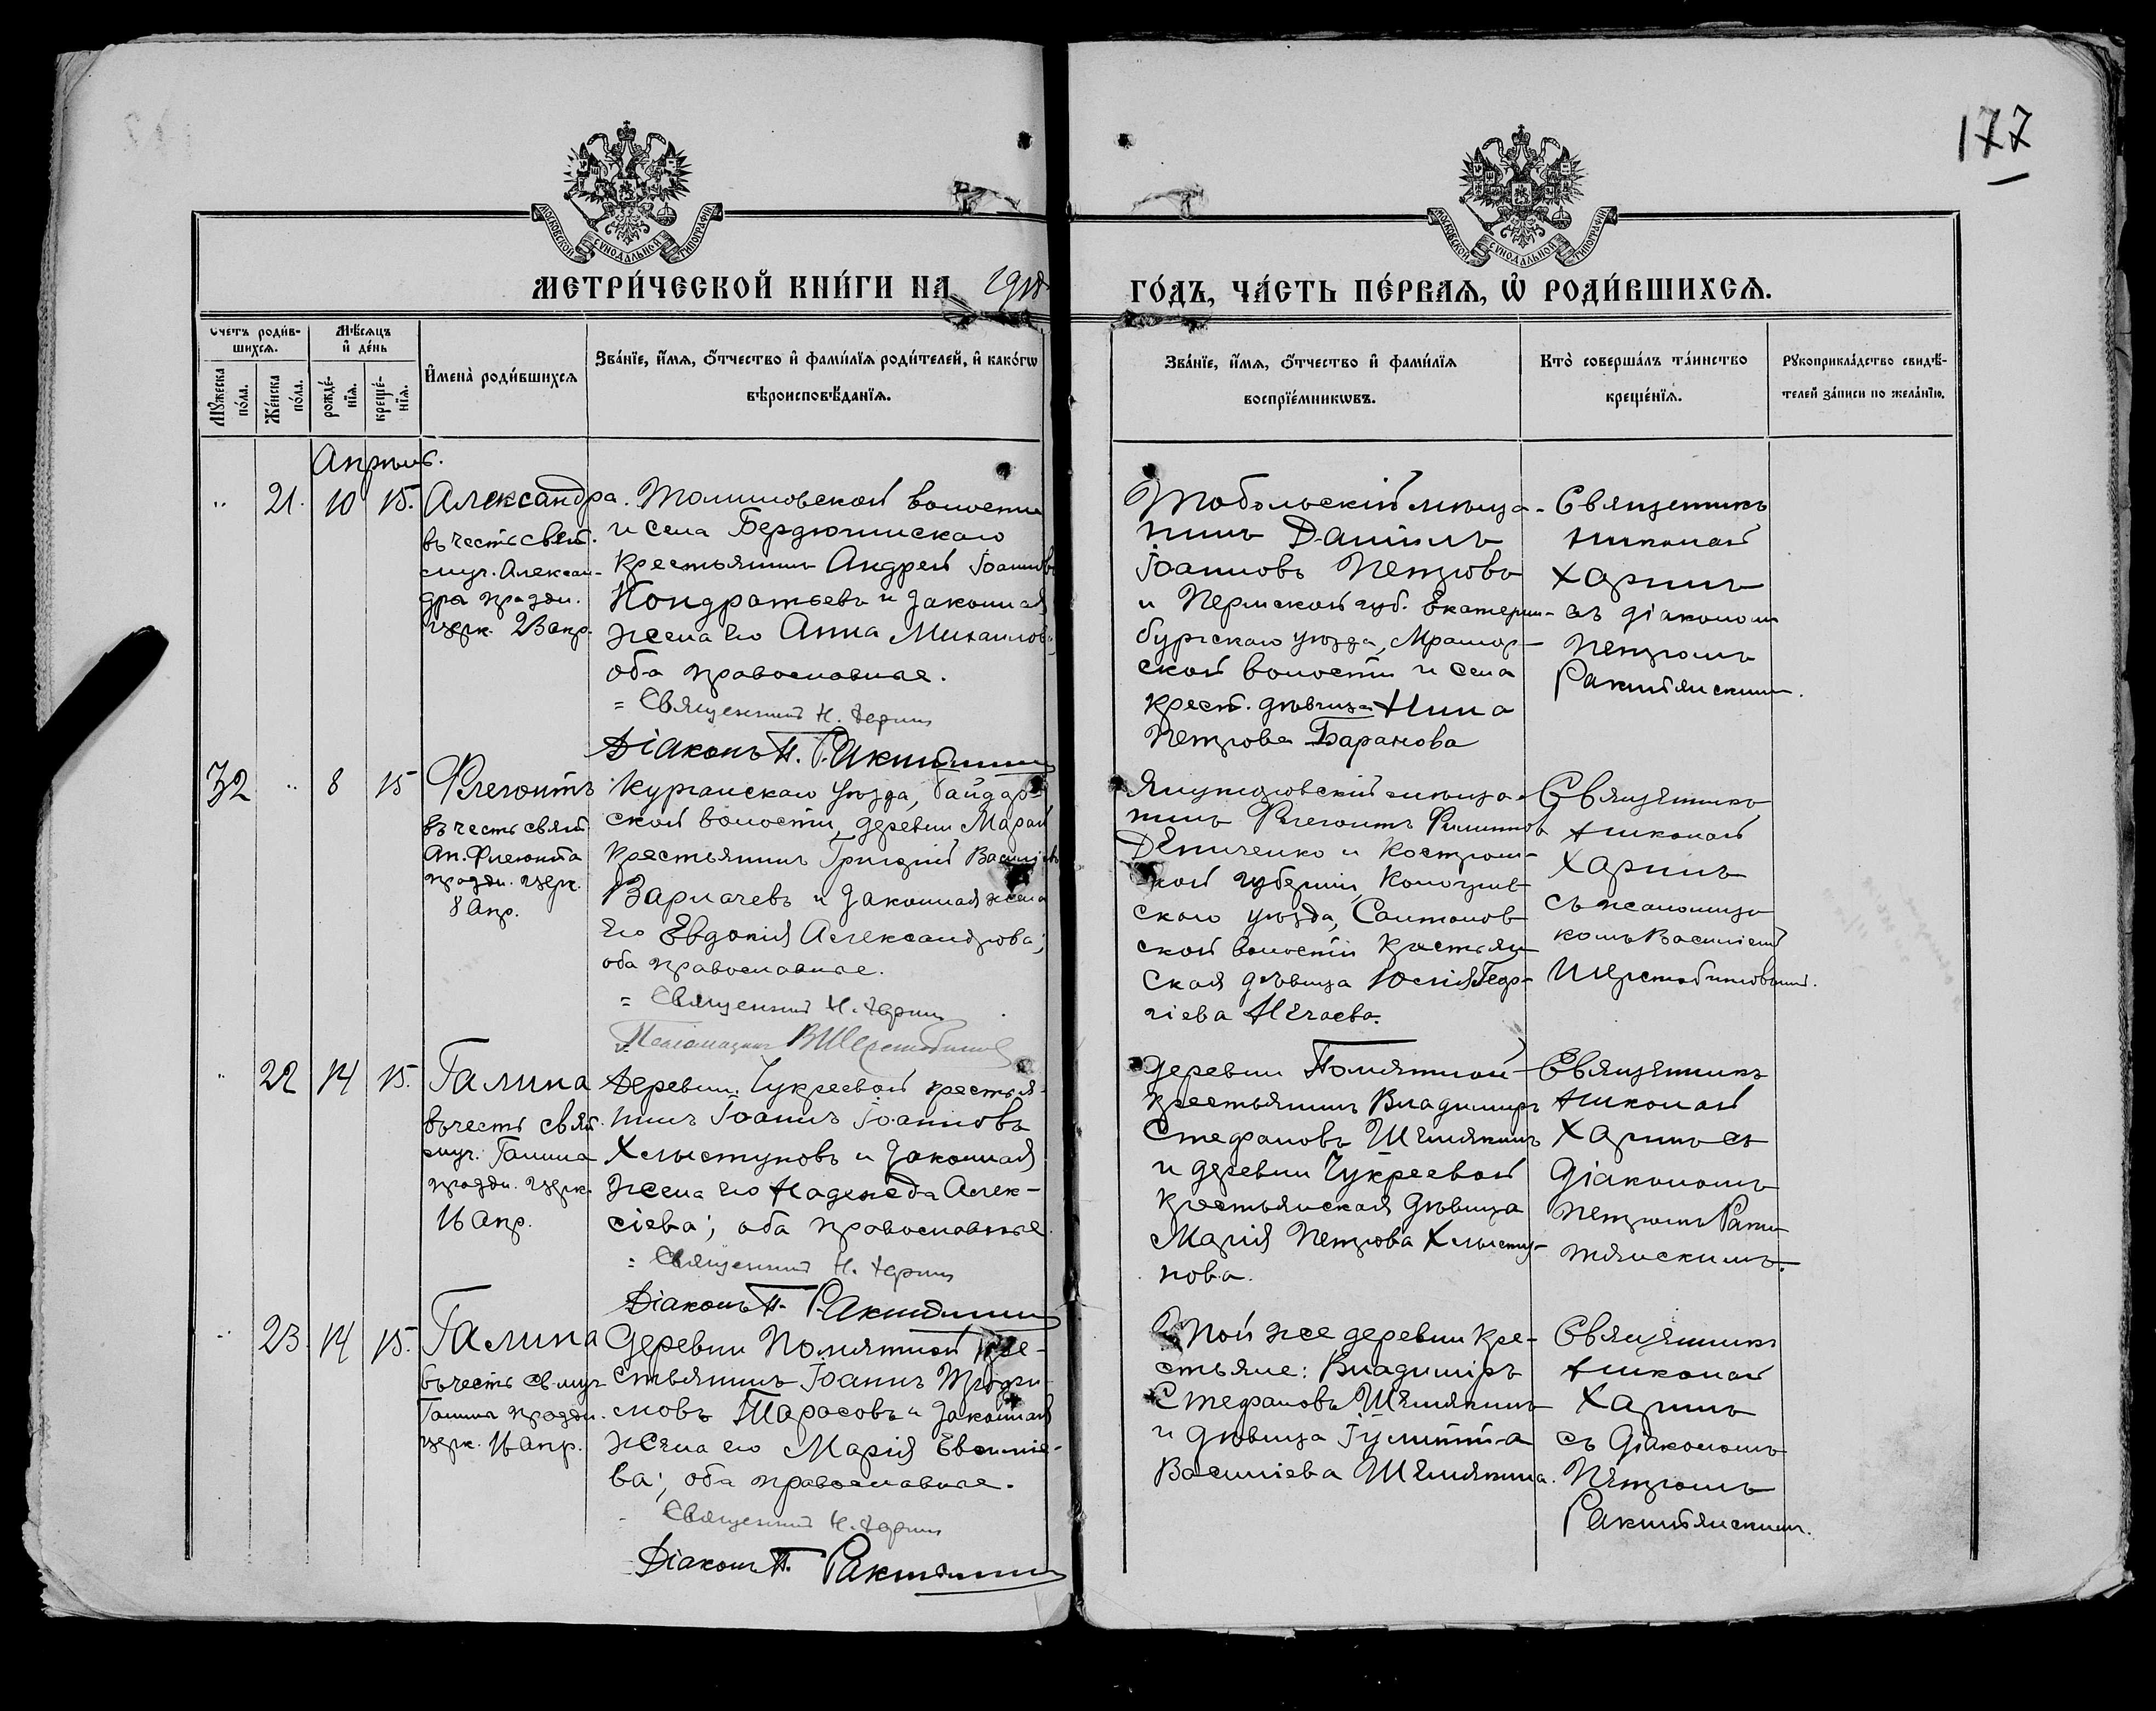 177
МОСКОВСКОЙ СѴНОДАЛЬНОЙ ТИПОГРАФІИ
МОСКОВСКОЙ СѴНОДАЛЬНОЙ ТИПОГРАФІИ
МЕТРИ́ЧЕСКОЙ КНИ́ГИ НА
ГО́ДЪ, ЧА́СТЬ ПЕ́РВАѦ, Ѡ҆ РОДИ́ВШИХСѦ.
Счетъ роди́в-
шихсѧ.
Мѣ́сѧцъ
и҆ де́нь
Мꙋ́жеска
по́ла.
Же́нска
по́ла.
рожде́-
нїѧ.
креще́-
нїѧ.
И҆мена̀ роди́вшихсѧ
Зва́нїе, и҆́мѧ, ѻ҆́тчество и҆ фами́лїѧ роди́телей, и҆ како́гѡ
вѣроисповѣ́данїѧ.
Зва́нїе, и҆́мѧ, ѻ҆́тчество и҆ фами́лїѧ
воспрїе́мникѡвъ.
Кто̀ соверша́лъ та́инство
креще́нїѧ.
Рꙋкоприкла́дство свидѣ́-
телей за́писи по жела́нїю.
Апрѣль.
" 21. 10 15.
Александра.
въ честь свят.
муч. Алексан-
дры праздн.
церк. 23 апр.
волости
и села Бердюгинскаго
крестьянинъ Андрей Іоанновъ
Кондратьевъ и законная
жена его Анна Михаилова,
оба православные.
= Священникъ Н. Харинъ
Діаконъ П. Ракитянскій
Тобольскій мѣща-
нинъ Даніилъ
Іоанновъ Петровъ
и Пермской губ. Екатерин-
бургскаго уѣзда, Мрамор-
ской волости и села
крест. дѣвица Нина
Петрова Баранова
Священникъ
Николай
Харинъ
съ діакономъ
Петромъ
Ракитянскимъ.
32 " 8 15
Флегонтъ
въ честь свят.
Ап. Флегонта
праздн. церк.
8 Апр.
Курганскаго уѣзда,
ской волости, деревни Марай
крестьянинъ Григорій Васильевъ
Варлачевъ и законная жена
его Евдокія Александрова;
оба православные.
= Священникъ Н. Харинъ
Псаломщикъ В Шерстобитовъ
Ялуторовскій мѣща-
нинъ Флегонтъ Филипповъ
Дениченко и Костром-
ской губерніи, Кологрив-
скаго уѣзда,
ской волости крестьян-
ская дѣвица Юлія Геор-
гіева Нечаева.
Священникъ
Николай
Харинъ
съ псаломщи-
комъ Василіемъ
Шерстобитовымъ.
" 22 14 15.
Галина
въ честь свят.
муч. Галины
праздн. церк.
16 Апр.
Деревни Чукреевой крестья-
нинъ Іоаннъ Іоанновъ
Хлыстуновъ и законная
жена его Надежда Алек-
сіева; оба православные.
= Священникъ Н. Харинъ
Діаконъ П. Ракитянскій
деревни Полиятной
крестьянинъ Владимиръ
Стефановъ Шемякинъ
и деревни Чукреевой
крестьянская дѣвица
Марія Петрова Хлысту-
нова.
Священникъ
Николай
Харинъ съ
діакономъ
Петромъ Раки-
тянскимъ.
" 23. 14 15.
Галина
въ честь св. муч.
Галины праздн.
церк. 16 апр.
Деревни Полиятной кре-
стьянинъ Іоаннъ Трофи-
мовъ Тарасовъ и законная
жена его Марія Евсиміе-
ва; оба православные.
Священникъ Н. Харинъ
Діаконъ П. Ракитянскій
Той же деревни кре-
стьяне: Владиміръ
Стефановъ Шемякинъ
и дѣвица Іулитта
Василіева Шемякина.
Священникъ
Николай
Харинъ
съ діакономъ
Петромъ
Ракитянскимъ.